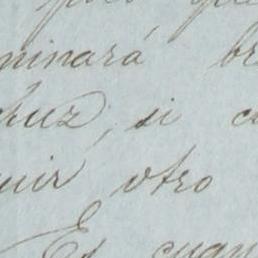 poco que
minará br
chuz, si c
uir otro
Es cuan